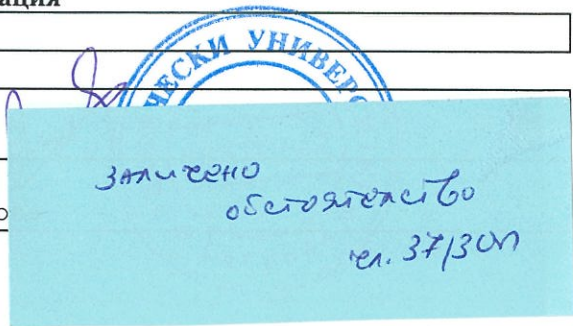 ация
ЧЕСКИ УНИВЕРС
заличено
обстоятелство
чл. 37/ЗОП